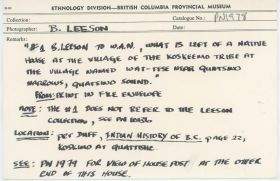 ETHNOLOGY DIVISION—BRITISH COLUMBIA PROVINCIAL MUSEUM
Collection: Catalogue No.: PN1978
Photographer: B. LEESON Date:
Remarks:
"#1 B.LEESON TO W.A.N., WHAT IS LEFT OF A NATIVE
HOUSE AT THE VILLAGE OF THE KOSKEEMO TRIBE AT
THE VILLAGE NAMED WAT-TESE NEAR QUATSINO
NARROWS, QUATSINO SOUND."
FROM: PRINT IN FILE ENVELOPE
NOTE: THE #1 DOES NOT REFER TO THE LEESON
COLLECTION, SEE PN
LOCATION: PER DUFF, INDIAN HISTORY OF B.C. PAGE 22,
KOSKIMO AT QUATTISHE.
SEE: PN 1979 FOR VIEW OF HOUSE POST AT THE OTHER
END OF THIS HOUSE.